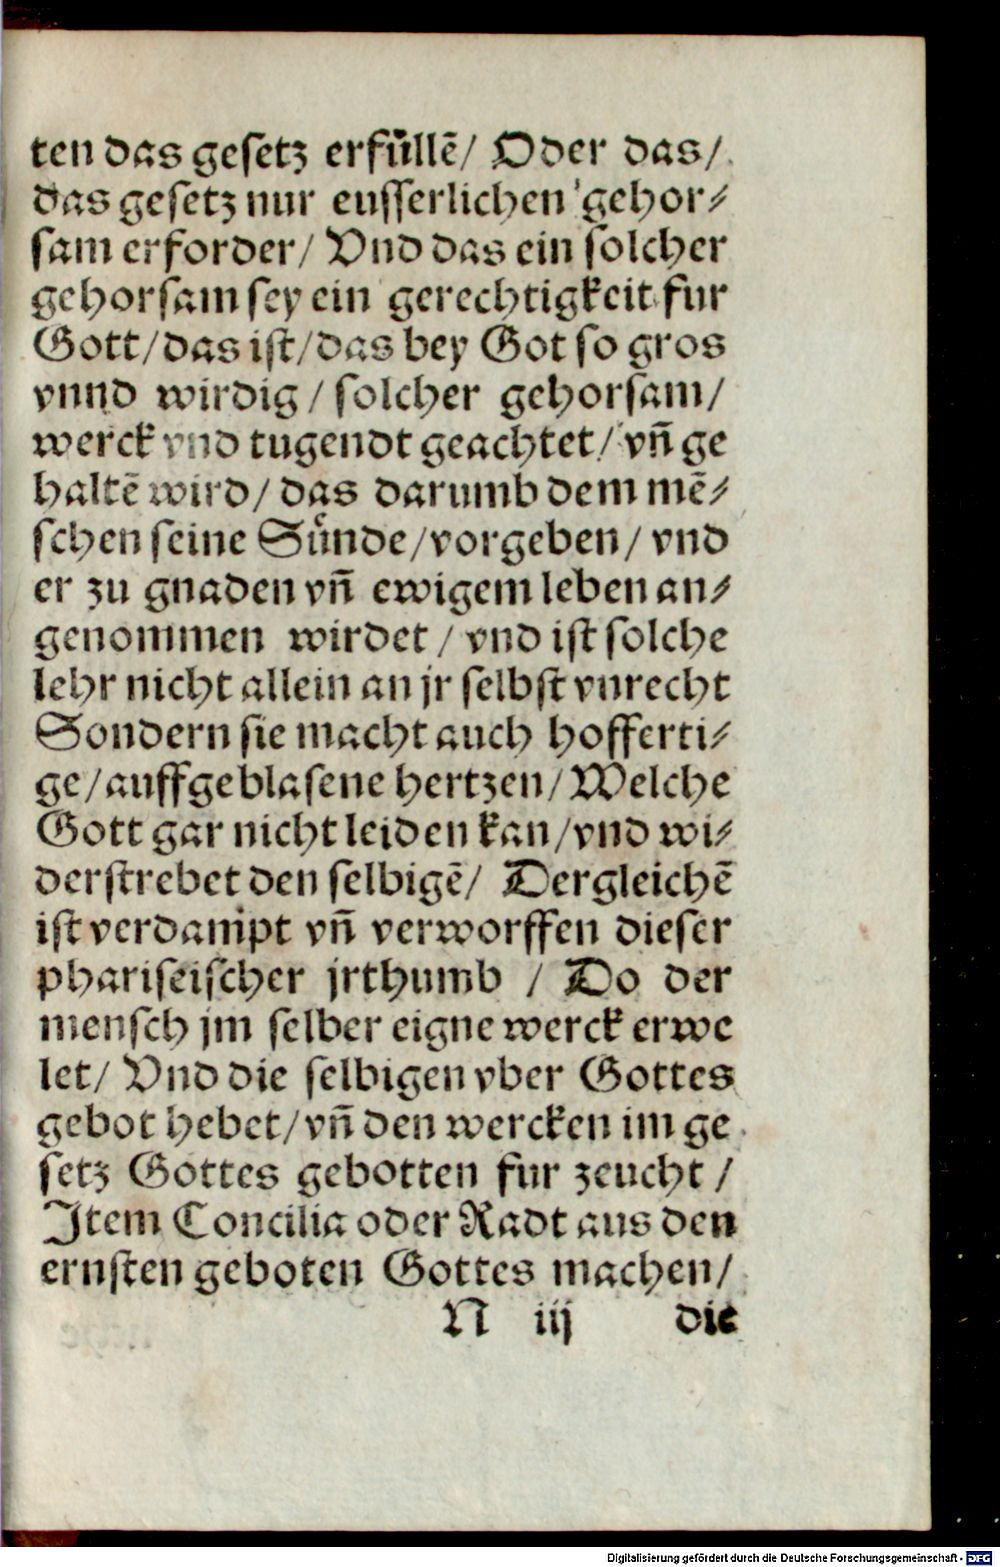 ten das gesetz erfuͤllē/ Oder das/
das gesetz nur eusserlichen gehor⸗
sam erforder/ Vnd das ein solcher
gehorsam sey ein gerechtigkeit fur
Gott/das ist/das bey Got so gros
vnnd wirdig / solcher gehorsam/
werck vnd tugendt geachtet/ vn̄ ge
haltē wird/ das darumb dem mē⸗
schen seine Suͤnde/vorgeben/ vnd
er zu gnaden vn̄ ewigem leben an⸗
genommen wirdet / vnd ist solche
lehr nicht allein an jr selbst vnrecht
Sondern sie macht auch hofferti⸗
ge/auffgeblasene hertzen/Welche
Gott gar nicht leiden kan/vnd wi⸗
derstrebet den selbigē/ Dergleichē
ist verdampt vn̄ verworffen dieser
phariseischer jrthumb / Do der
mensch jm selber eigne werck erwe
let/ Vnd die selbigen vber Gottes
gebot hebet/vn̄ den wercken im ge
setz Gottes gebotten fur zeucht /
Item Concilia oder Radt aus den
ernsten geboten Gottes machen/
N iij die
Digitalisierung gefördert durch die Deutsche Forschungsgemeinschaft - DFG